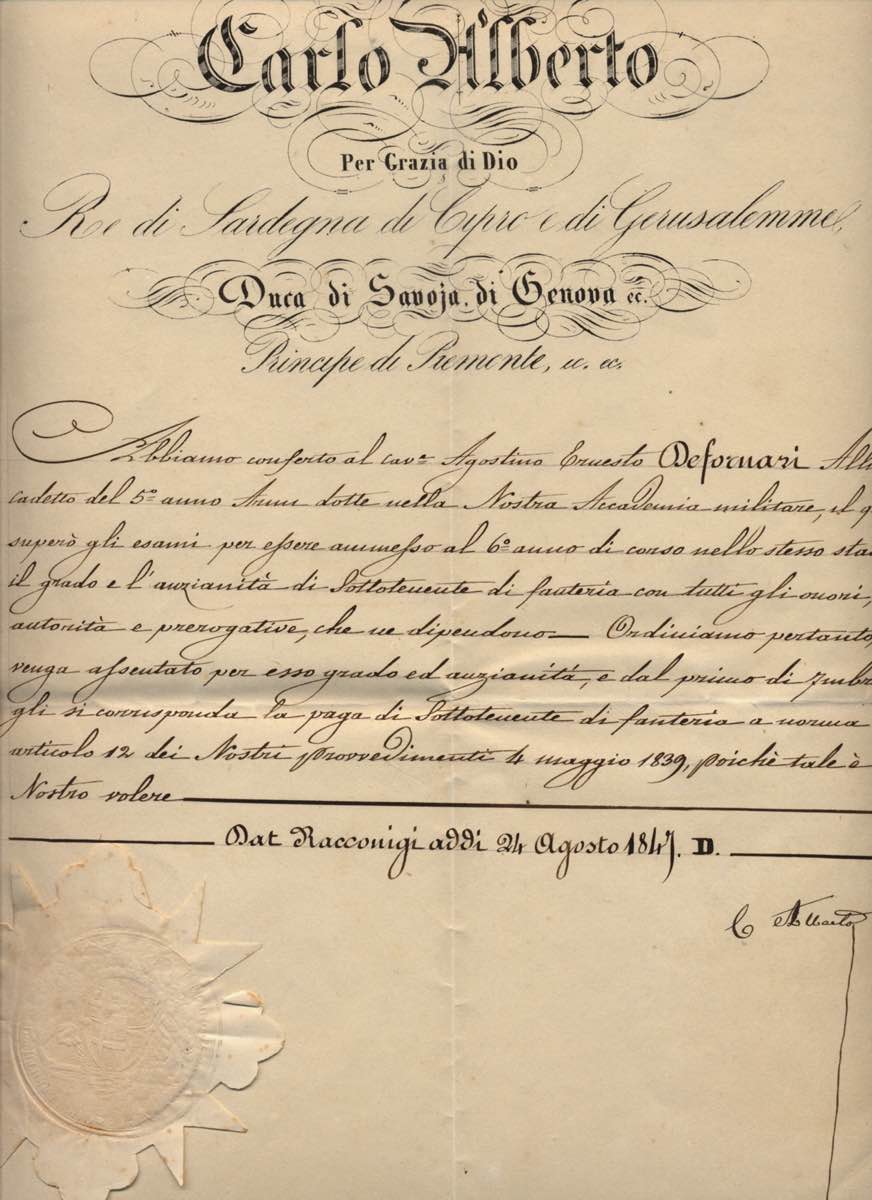 Carlo Alberto
Per Grazia di Dio
Re di Sardegna di Cipro e di Gerusalemme,
Duca di Savoja, di Genova ec.
Principe di Piemonte, ec. ec.
Abbiamo conferto al cav.e Agostino Ernesto Defornari All
cadetto del 5.o anno nella Nostra Accademia militare, il q
superò gli esami per essere ammesso al 6.o anno di corso nello stesso sta
il grado e l'anzianità di Sottotenente di fanteria con tutti gli onori,
autorità e prerogative, che ne dipendono— Ordiniamo pertanto,
venga assentato per esso grado ed anzianità, e dal primo di 7mbr
gli si corrisponda la paga di Sottotenente di fanteria a norma
articolo 12 dei Nostri provvedimenti 4 maggio 1839, poichè tale è
Nostro volere
Dat Racconigi addì 24 Agosto 1847. D.
C Alberto